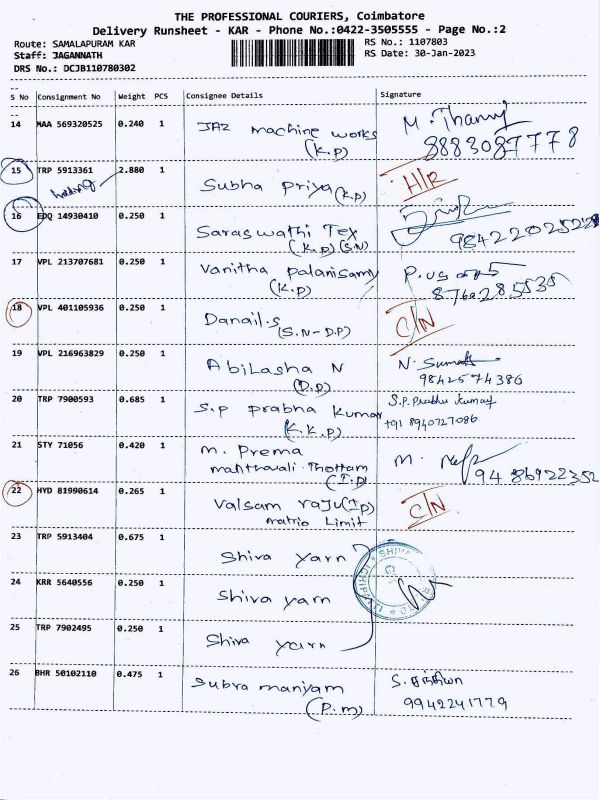 THE PROFESSIONAL COURIERS, Coimbatore
Delivery Runsheet - KAR - Phone No.:0422-3505555 - Page No.:2
Route: SAMALAPURAM KAR
RS No.: 1107803
Staff: JAGANNATH
RS Date: 30-Jan-2023
DRS No.: DCJB110780302
S No Consignment No Weight PCS Consignee Details Signature
14 MAA 569320525 0.240 1 JAZ machine works M. Thanuj
(K.P) 8883087778
15 TRP 5913361 2.880 1 Subha Priya (K.P) H/R
16 EDQ 14930410 0.250 1 Saraswathi Tex
(K.P) (S.N)
17 VPL 213707681 0.250 1 Vanitha Palanisamy
(K.P) 8760285535
18 VPL 401105936 0.250 1 Danail.S C/N
(S.N-D.P)
19 VPL 216963829 0.250 1 Abilasha N N.
(D.P) 9842574386
20 TRP 7900593 0.685 1 S.P Prabha Kumar S.P. Prabhu Kumar
(K.K.P) +91 8940727086
21 STY 71056 0.420 1 M. Prema M.
Thottam (I.P) 9486922352
22 HYD 81990614 0.265 1 Valsam Raju (I.P) C/N
matrio Limit
23 TRP 5913404 0.675 1 Shiva yarn
24 KRR 5640556 0.250 1 Shiva yarn
25 TRP 7902495 0.250 1 Shiva yarn
26 BHR 50102110 0.475 1 Subramaniyam S. சத்தியா
(P.M) 9942241779